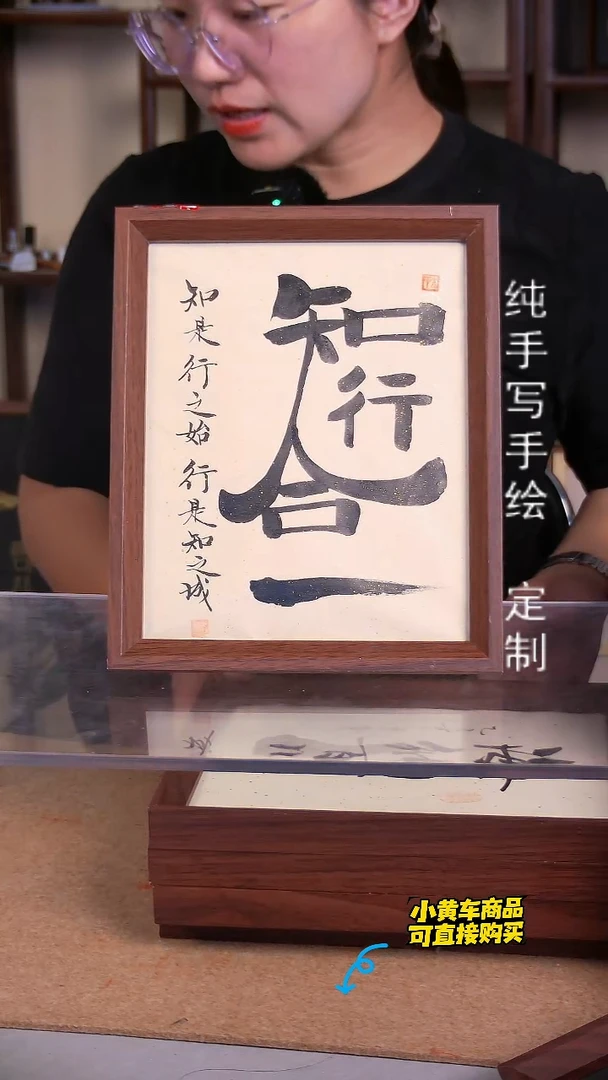 知行合一
知是行之始 行是知之城
纯手写手绘 定制
小黄车商品
可直接购买